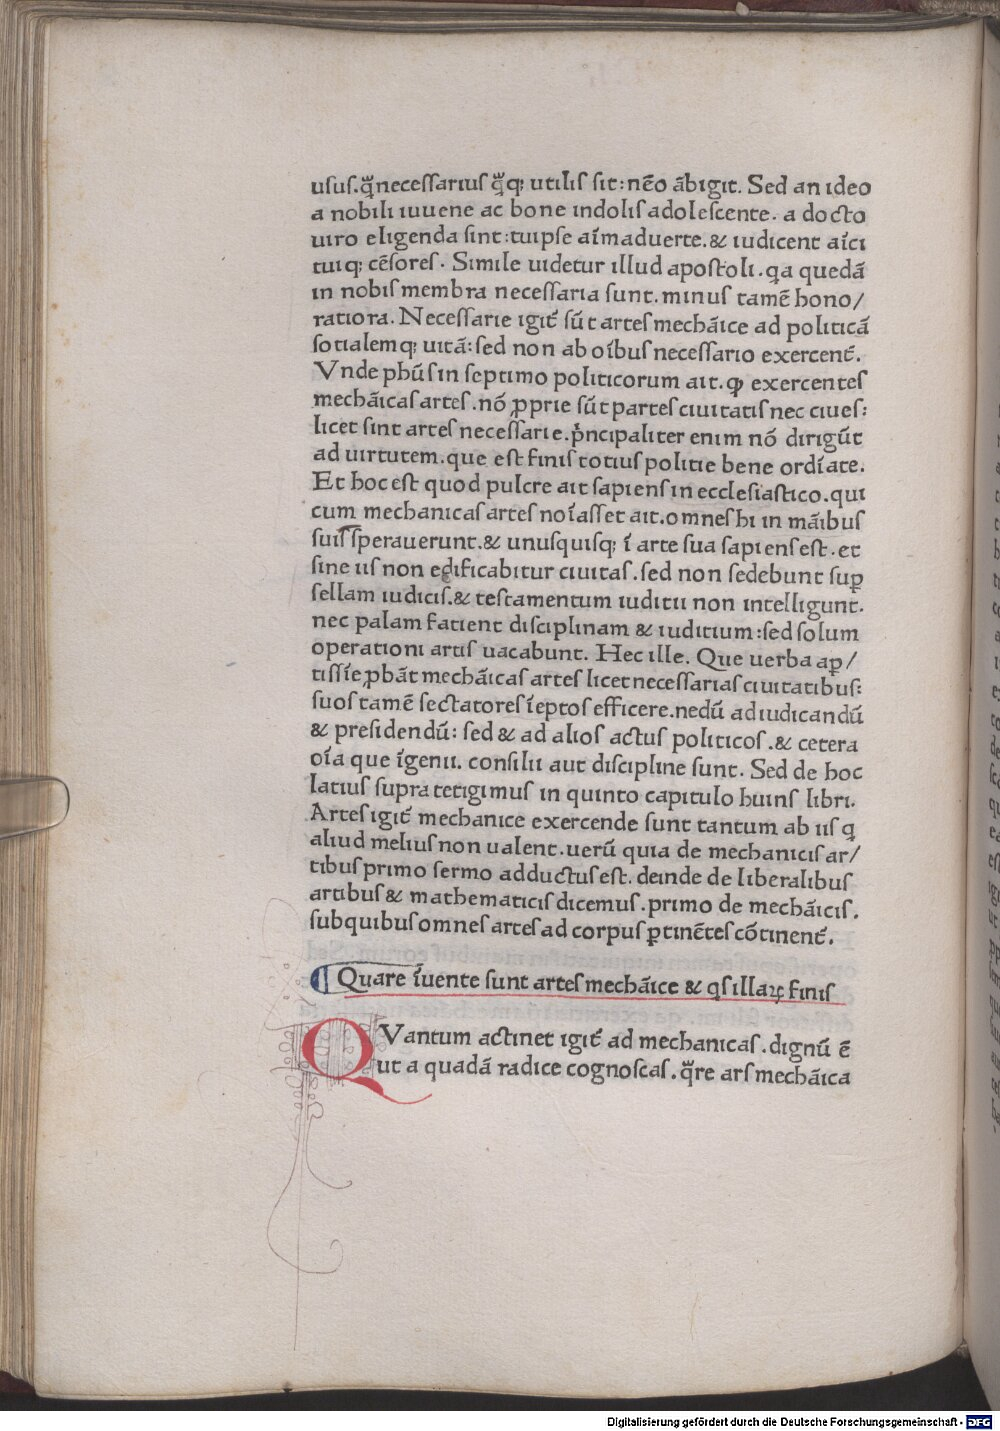 usus.q̃necessarius q̃q; utilis sit:nēo ābigit. Sed an ideo
a nobili iuuene ac bone indolis adolescente. a docto
uiro eligenda sint:tuipse aīmaduerte.& iudicent aīci
tuiq; cēsores. Simile uidetur illud apostoli.qa quedā
in nobis membra necessaria sunt.minus tamē hono/
ratiora. Necessarie igiť sūt artes mechāice ad politicā
sotialemq; uitā:sed non ab oībus necessario exercenť.
Vnde phūs in septimo politicorum ait.ꝙ exercentes
mechāicas artes.nō ꝓprie sūt partes ciuitatis nec ciues:
licet sint artes necessarie.pͥncipaliter enim nō dirigūt
ad uirtutem.que est finis totius politie bene ordīate.
Et hoc est quod pulcre ait sapiens in ecclesiastico.qui
cum mechanicas artes noīasset ait.omnes hi in māibus
suis sperauerunt.& unusquisq; ī arte sua sapiens est.et
sine iis non edificabitur ciuitas.sed non sedebunt suꝑ
sellam iudicis.& testamentum iuditii non intelligunt.
nec palam fatient disciplinam & iuditium:sed solum
operationi artis uacabunt. Hec ille. Que uerba aꝑ/
tissīe ꝓbāt mechāicas artes licet necessarias ciuitatibus:
suos tamē sectatores īeptos efficere.nedū ad iudicandū
& presidendū: sed & ad alios actus politicos.& cetera
oīa que īgenii. consilii aut discipline sunt. Sed de hoc
latius supra tetigimus in quinto capitulo huins libri.
Artes igiť mechanice exercende sunt tantum ab iis q
aliud melius non ualent.uerū quia de mechanicis ar/
tibus primo sermo adductus est. deinde de liberalibus
artibus & mathematicis dicemus.primo de mechāicis.
subquibus omnes artes ad corpus ꝑtinētes cōtinenť.
¶ Quare īuente sunt artes mechāice & qs illaꝝ finis
QVantum actinet igiť ad mechanicas.dignū ē
ut a quadā radice cognoscas.q̃re ars mechāica
Digitalisierung gefördert durch die Deutsche Forschungsgemeinschaft - DFG